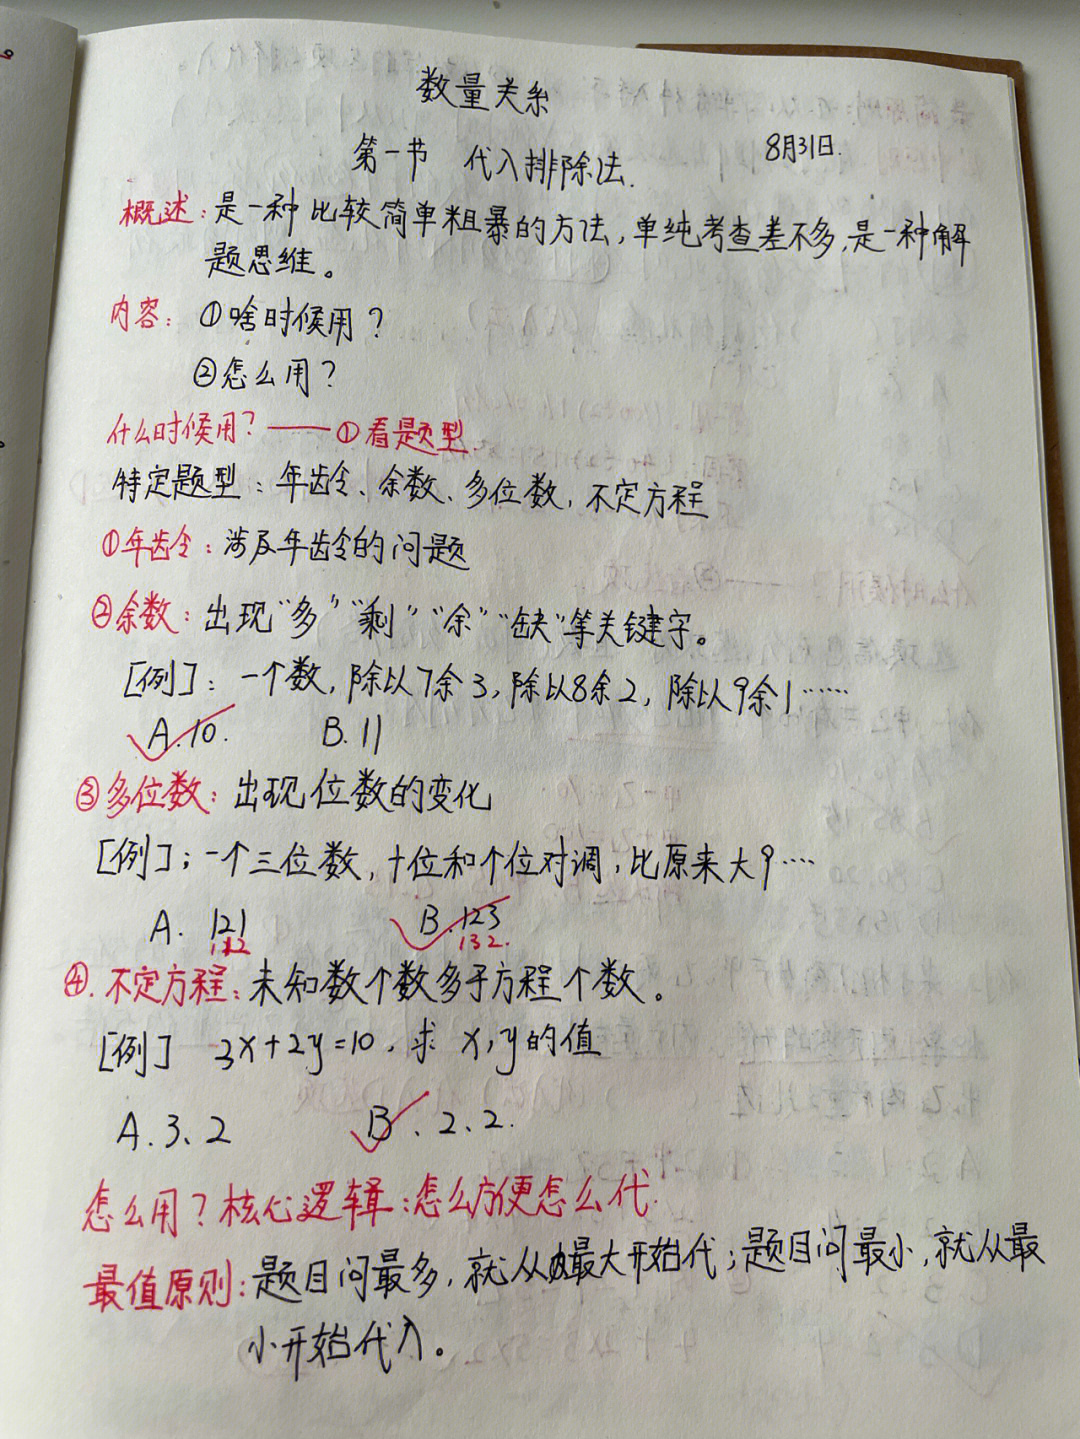 数量关系
第一节 代入排除法.
8月31日.
概述:是一种比较简单粗暴的方法,单纯考查差不多,是一种解
题思维。
内容: ①啥时候用?
②怎么用?
什么时候用?——①看题型
特定题型:年龄、余数、多位数,不定方程
①年龄:涉及年龄的问题
②余数:出现“多”“剩”“余”“缺”等关键字。
[例]:一个数,除以7余3,除以8余2,除以9余1……
A.10. B.11
③多位数:出现位数的变化
[例];一个三位数,十位和个位对调,比原来大9····
A. 121 B.123
112 132.
④.不定方程:未知数个数多于方程个数。
[例] 3x+2y=10,求 x,y的值
A.3、2 B、2、2.
怎么用?核心逻辑:怎么方便怎么代.
最值原则:题目问最多,就从最大开始代;题目问最小,就从最
小开始代入。